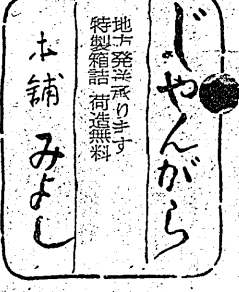 じゃんがら
地方発送承ります
特製箱詰 荷造無料
本舗 みよし